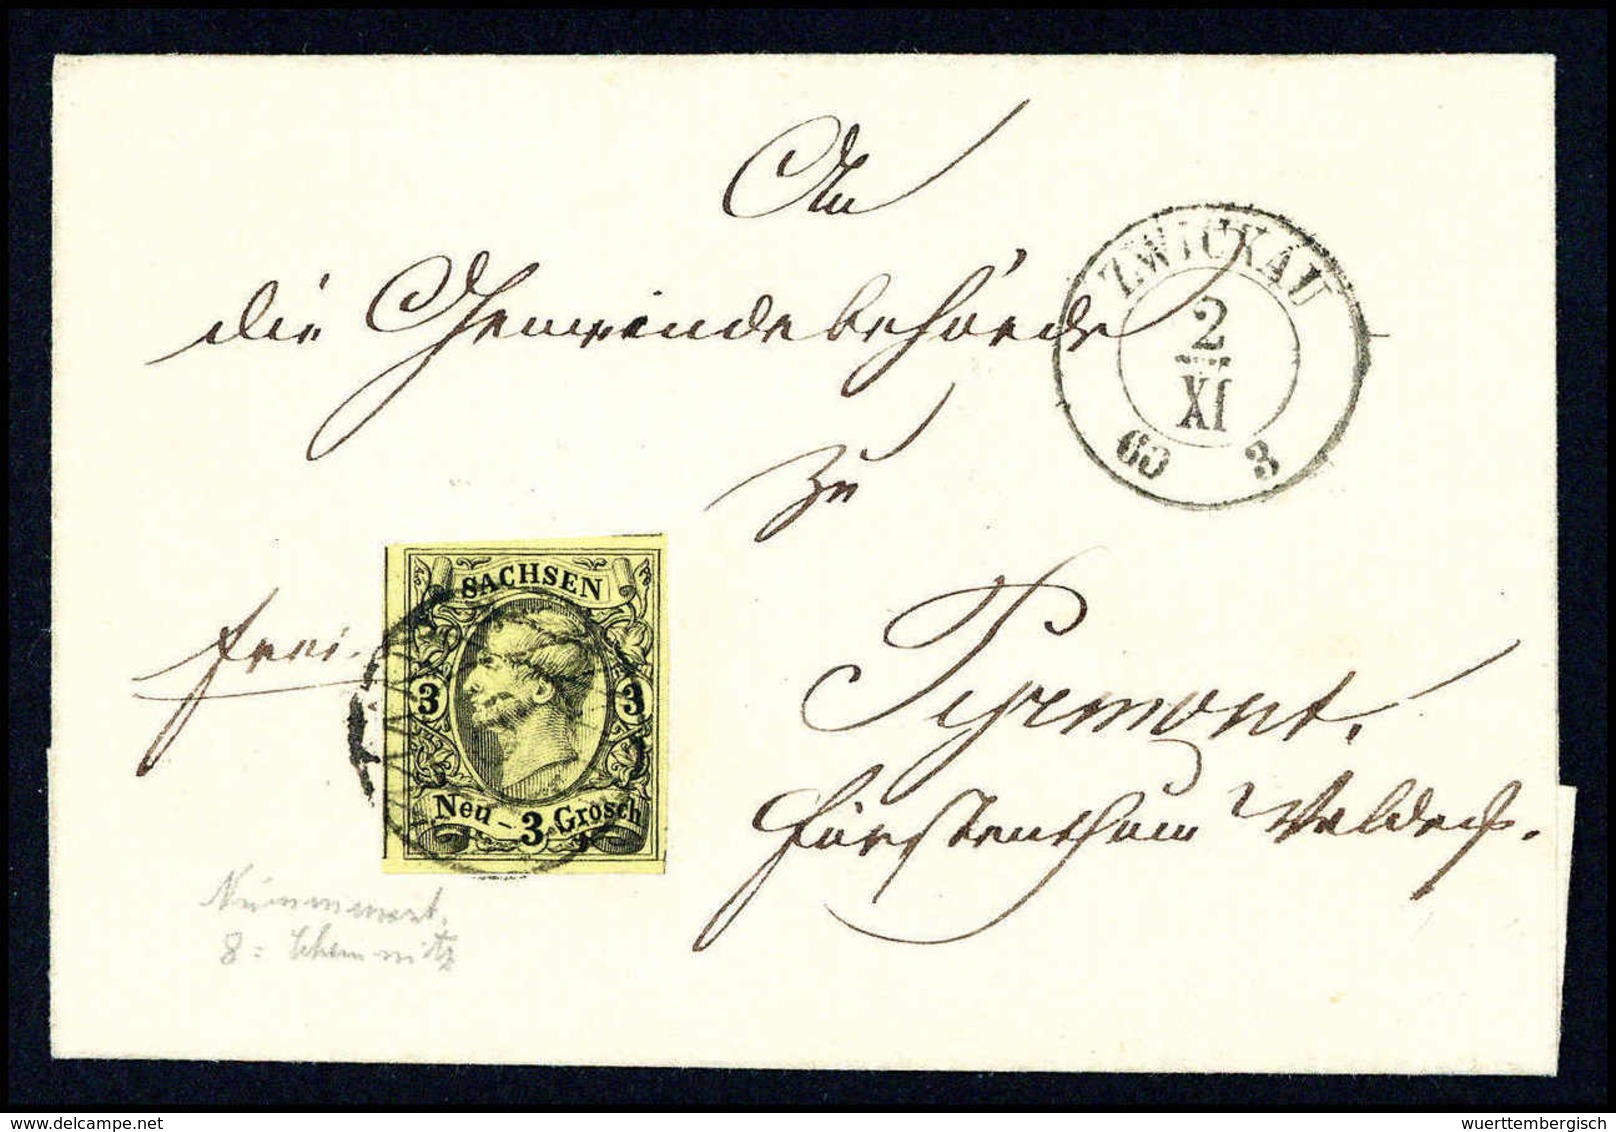 An
die Gemeindebehörde
zu
Pyrmont,
Fürstenthum Waldeck.
frei.
ZWICKAU
2
XI
60 3
SACHSEN
3 3
Neu - 3 Grosch
8 = Chemnitz
delcampe.net
wuerttembergisch